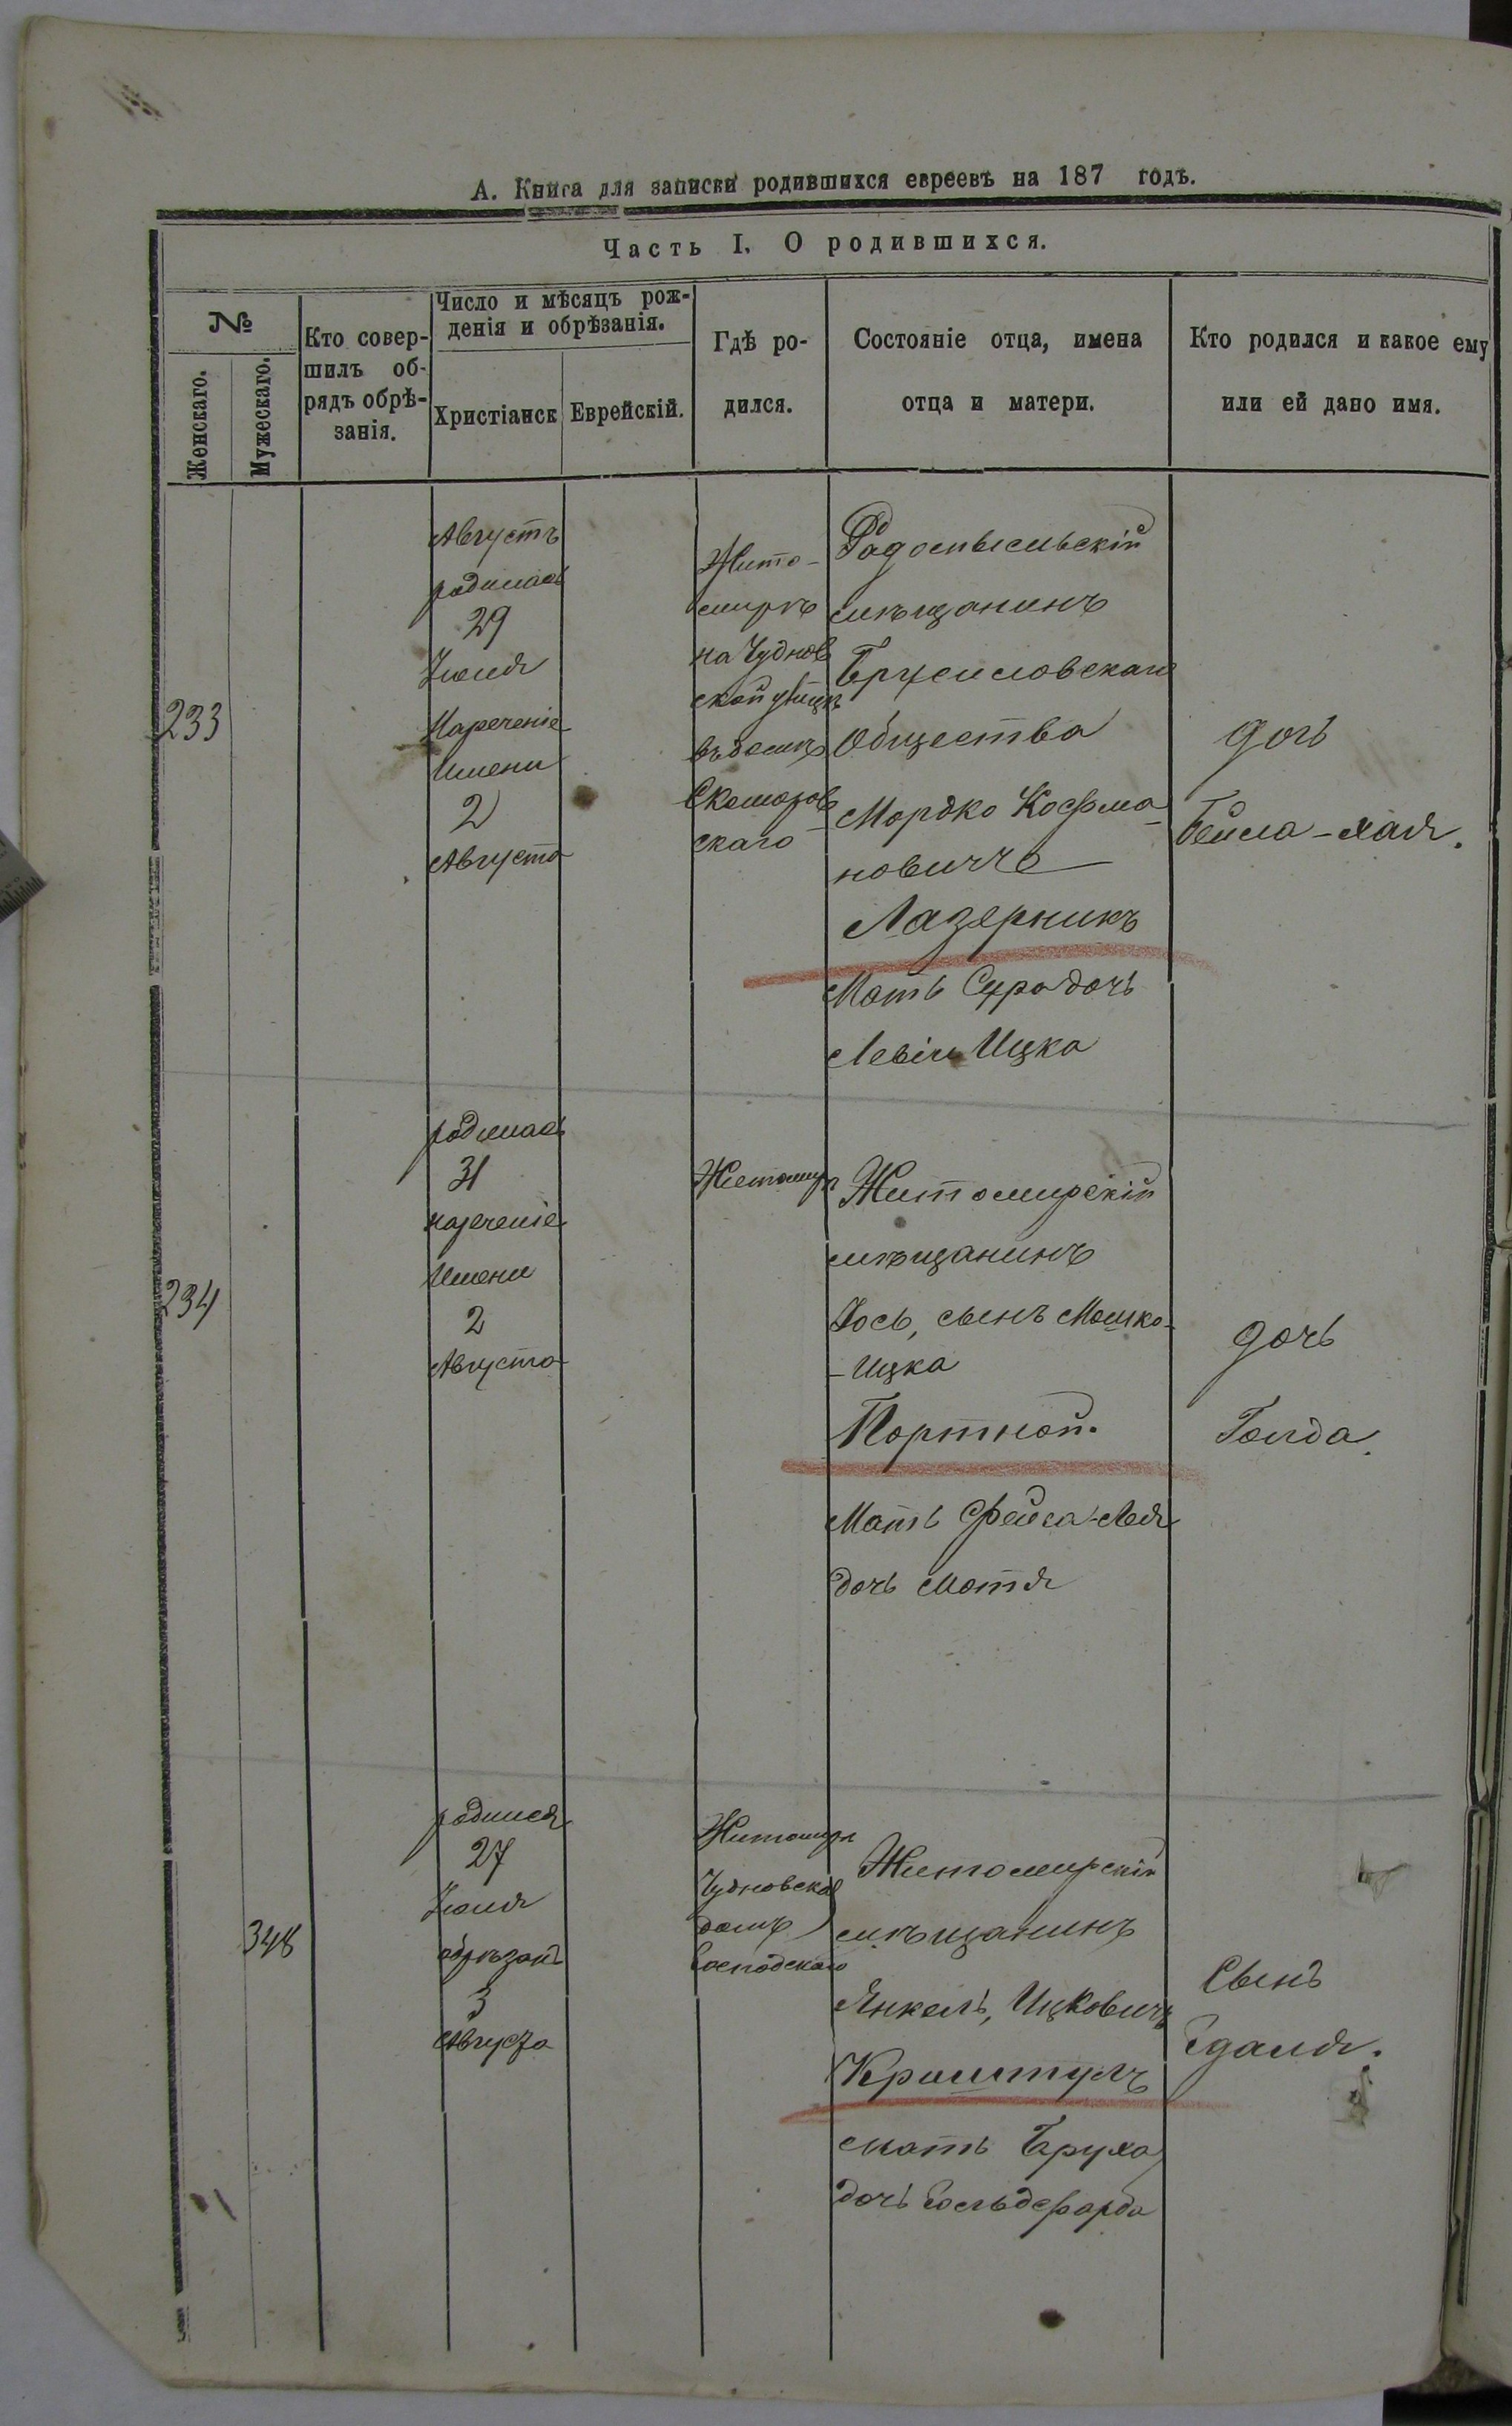 А. Книга для записки родившихся евреевъ на 187 годъ.
Часть I. О родившихся.
№
Женскаго.
Мужескаго.
Кто совер-
шилъ об-
рядъ обрѣ-
занія.
Число и мѣсяцъ рож-
денія и обрѣзанія.
Христіанск
Еврейскій.
Гдѣ ро-
дился.
Состояніе отца, имена
отца и матери.
Кто родился и какое ему
или ей дано имя.
233
Августъ
родилась
29
Іюля
Нареченіе
Имени
2
Августа
Жито-
мирѣ
на Чуднов
ской улицѣ
въ домѣ
Скоморов
скаго
Радомысльскій
мѣщанинъ
Брусиловскаго
Общества
Мордко Кофма-
новичъ
Лазерникъ
Мать Сура дочь
Левія Ицка
дочь
Бейла-хая.
234
родилась
31
нареченіе
Имени
2
Августа
Житомирѣ
Житомирскій
мѣщанинъ
Іось, сынъ Мошко-
-Ицка
Портной.
Мать Фейга-Лея
дочь Мотя
дочь
Голда.
348
родился
27
Іюля
обрѣзанъ
3
Августа
Житомирѣ
Чудновская
домъ
Господскаго
Житомирскій
мѣщанинъ
Янкель, Ицковичъ
Криштулъ
мать Бруха
дочь Гольдефарба
Сынъ
Гдаля.